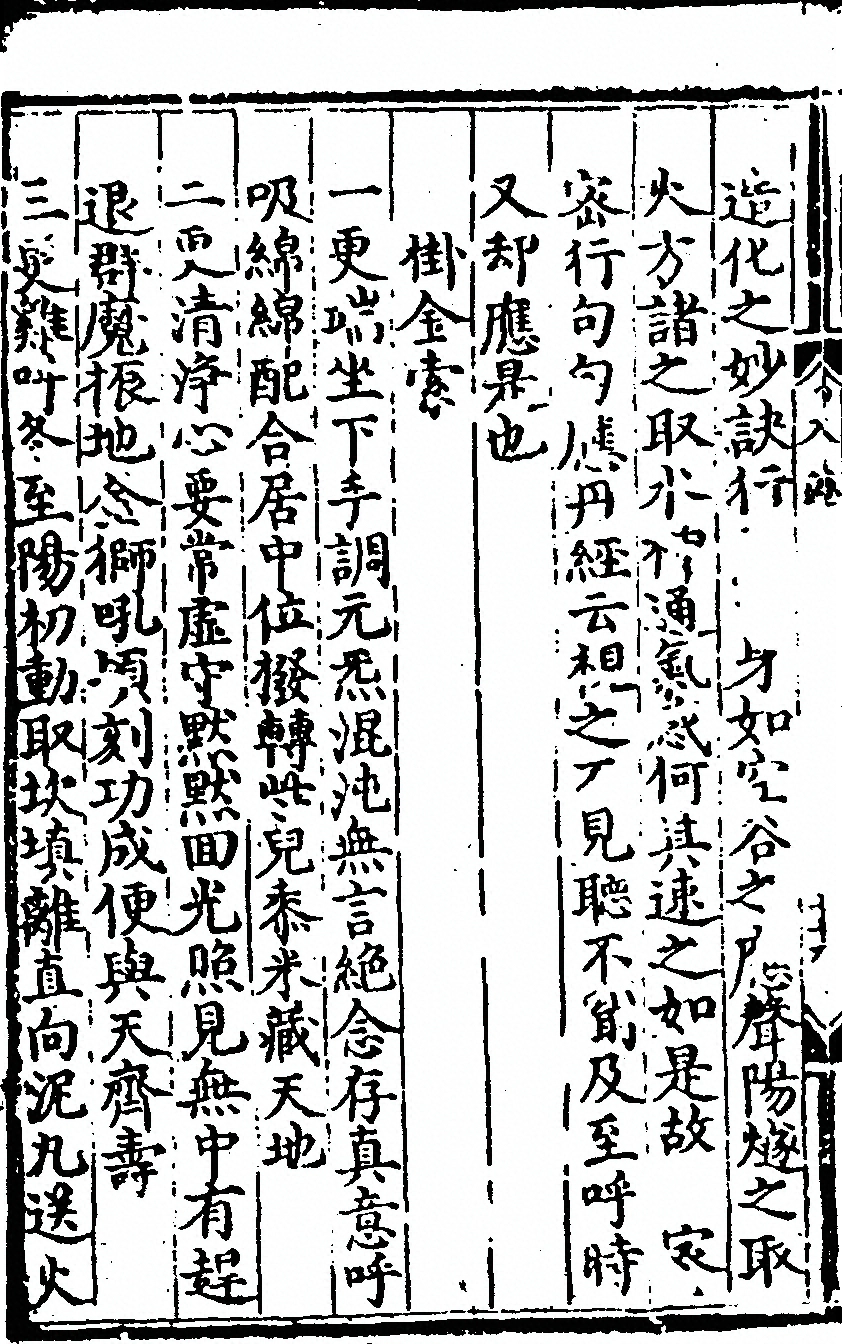 造化之妙訣行 身如空谷之應聲陽燧之取
火方諸之取水 通氣感何其速之如是故 家
密行句句應丹經云想之不見聽不能及至呼時
又却應是也
掛金索
一更端坐下手調元炁混沌無言絶念存真意呼
吸綿綿配合居中位撥轉些兒黍米藏天地
二更清淨心要常虛守默默囬光照見無中有趕
退群魔振地金獅吼頃刻功成便與天齊壽
三更雞叫冬至陽初動取坎填離直向泥丸送火